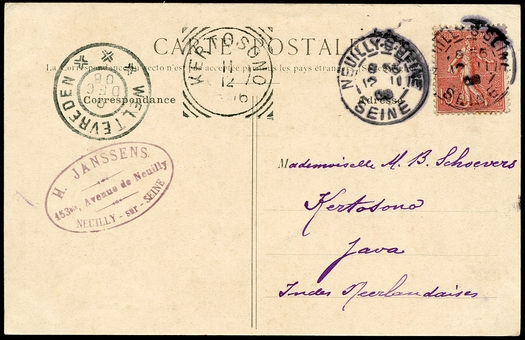 CARTE POSTALE
La Correspondance au recto n'est pas acceptée par tous les pays étrangers
Correspondance
Adresse
WELTEVREDEN
DEC
KERTOSONO
11
12
NEUILLY-S-SEINE
SEINE
SEINE
H. JANSSENS.
153bis, Avenue de Neuilly
NEUILLY-sur-SEINE
Mademoiselle M. B. Schoevers
Kertosono
Java
Indes Neerlandaises